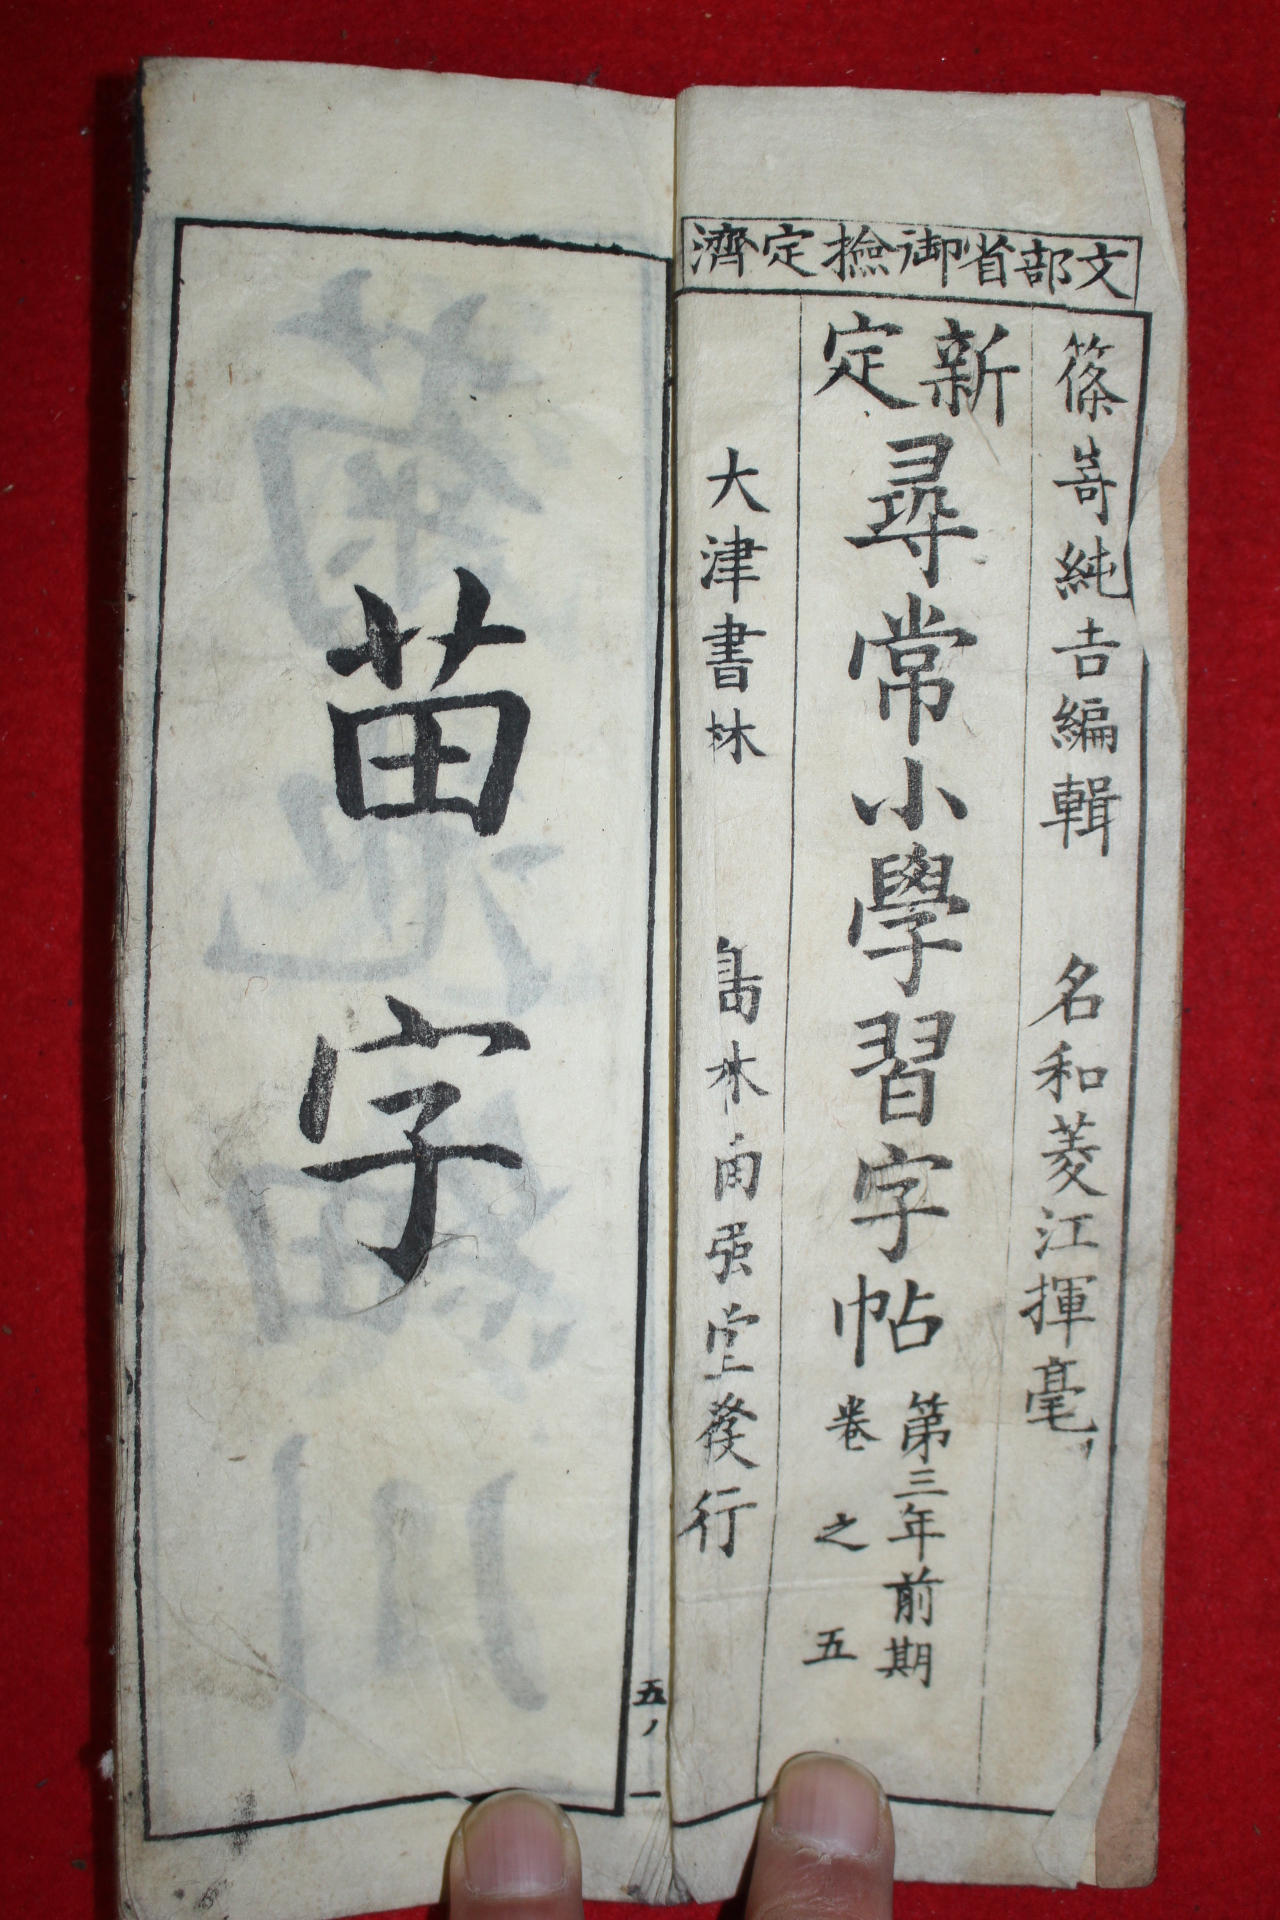 文部省御撿定濟
篠嵜純吉編輯 名和菱江揮毫
新定
尋常小學習字帖
第三年前期
卷之五
大津書林 島林甫强堂發行
苗字
五ノ一